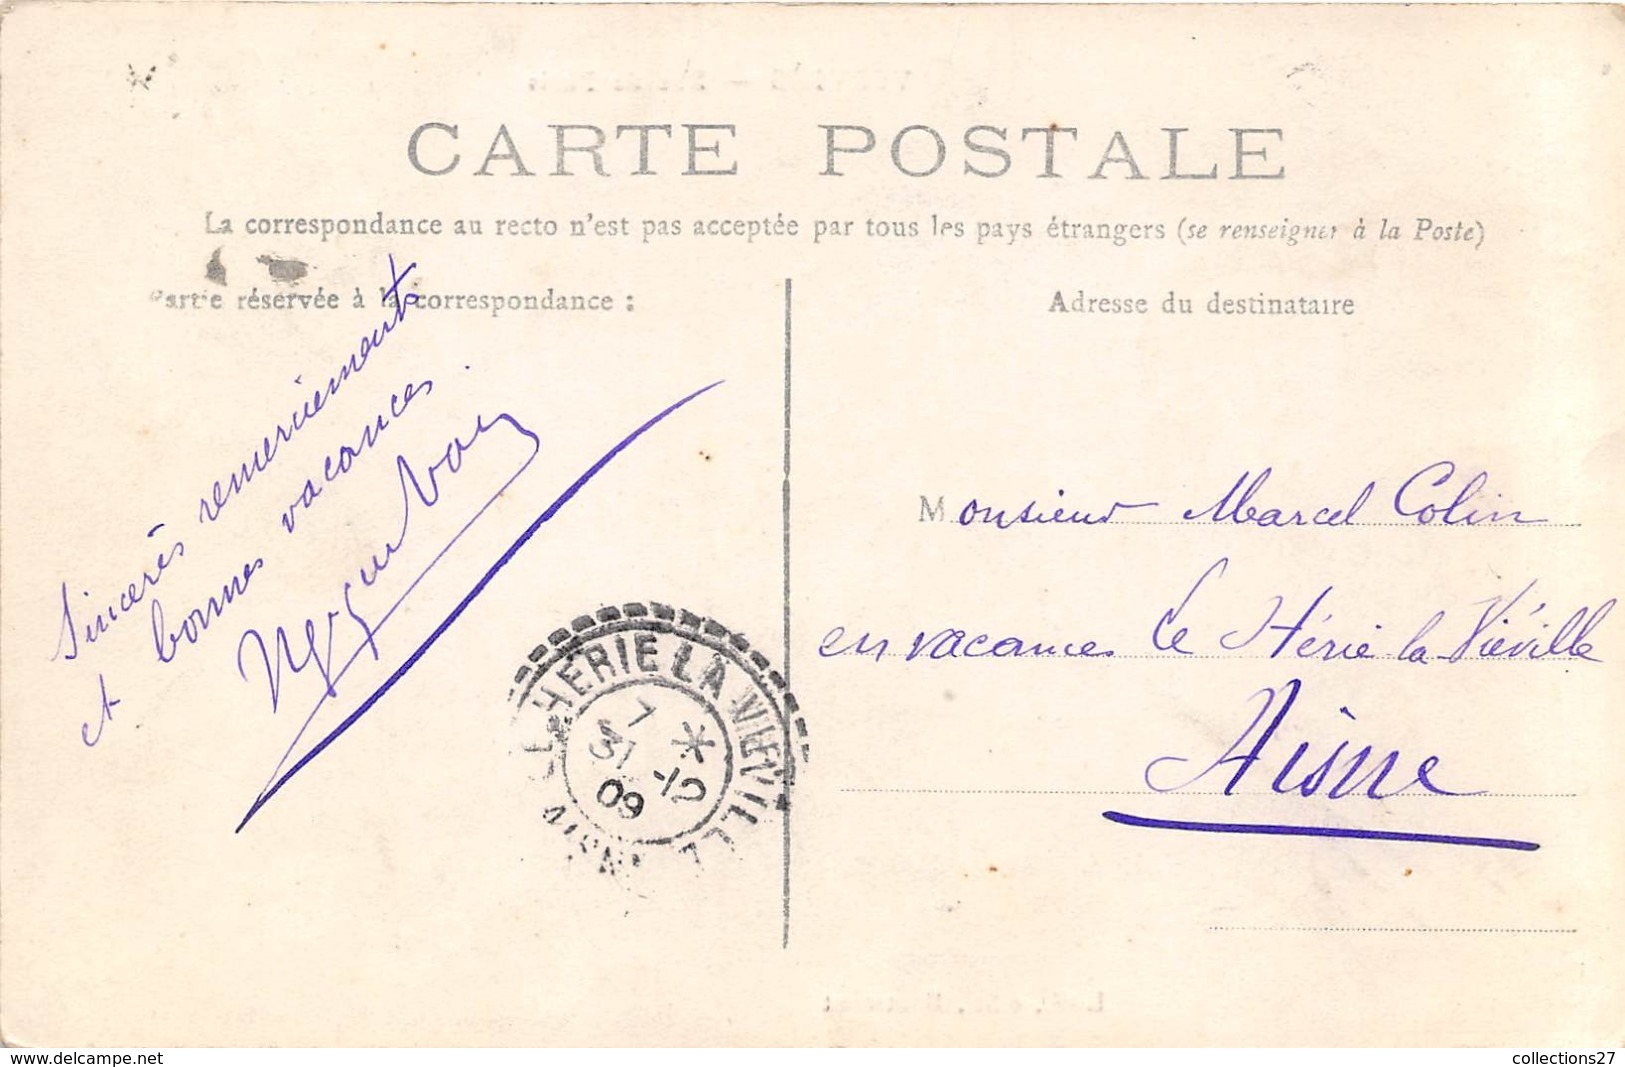 CARTE POSTALE
La correspondance au recto n'est pas acceptée par tous les pays étrangers (se renseigner à la Poste)
Partie réservée à la correspondance :
Adresse du destinataire
Sincères remerciements
et bonnes vacances.
Monsieur Marcel Colin
en vacances Le Hérie la Viéville
Aisne
LE HERIE LA VIEVILLE
7 *
31 -12
09
AISNE
www.delcampe.net
collections27